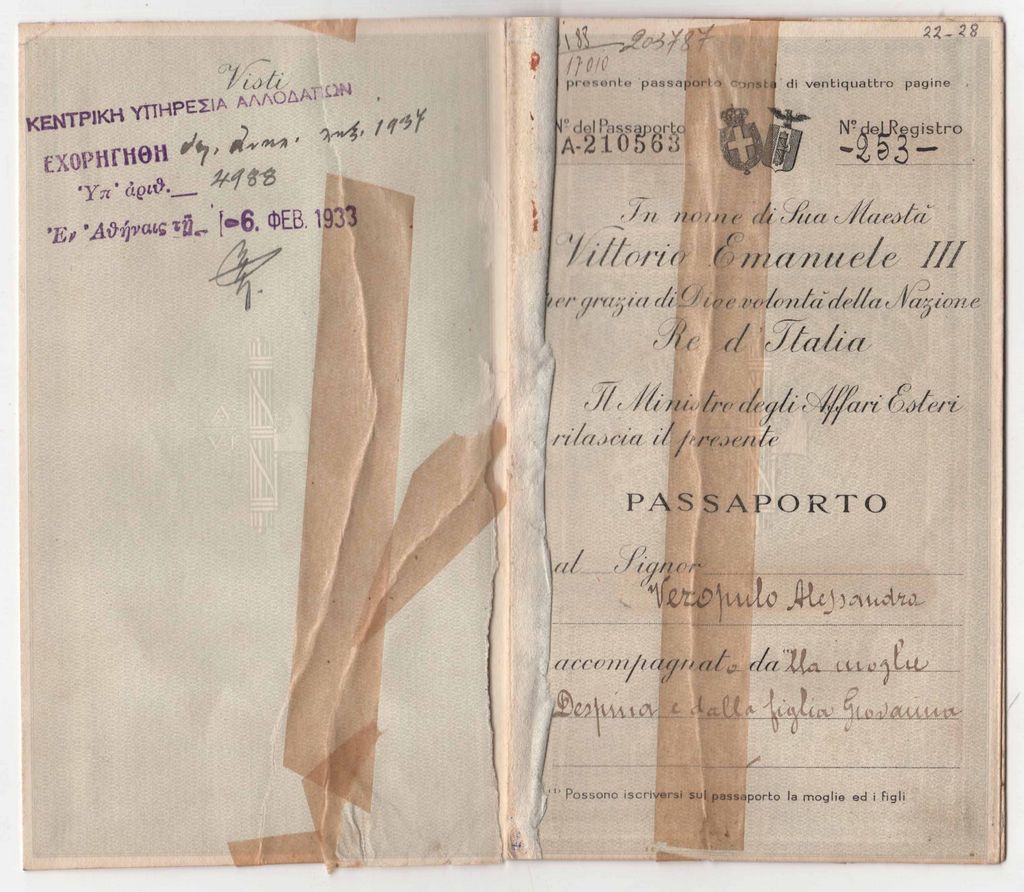 Visti
ΚΕΝΤΡΙΚΗ ΥΠΗΡΕΣΙΑ ΑΛΛΟΔΑΠΩΝ
ΕΧΟΡΗΓΗΘΗ 1934
Ὑπ' ἀριθ. 4988
Ἐν Ἀθήναις τῇ -6. ΦΕΒ. 1933
203787
17010
22-28
presente passaporto consta di ventiquattro pagine
Nº del Passaporto
A-210563
Nº del Registro
-253-
In nome di Sua Maestà
Vittorio Emanuele III
per grazia di Dio e volontà della Nazione
Re d'Italia
Il Ministro degli Affari Esteri
rilascia il presente
PASSAPORTO
al Signor
Veropulo Alessandro
accompagnato dalla moglie
Despina e dalla figlia Giovanna
(1) Possono iscriversi sul passaporto la moglie ed i figli